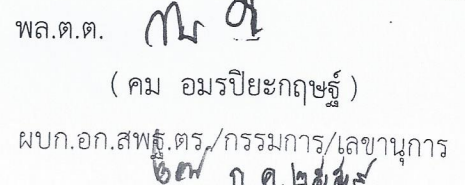 พล.ต.ต.
( คม อมรปิยะกฤษฐ์ )
ผบก.อก.สพฐ.ตร./กรรมการ/เลขานุการ
๒๗ ก.ค.